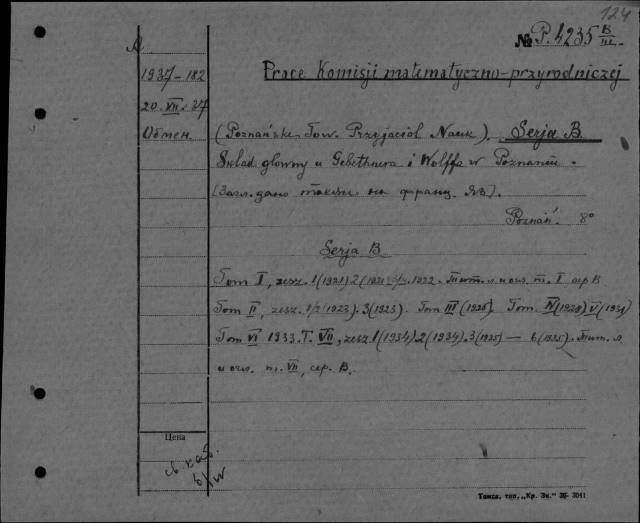 124
№ P. 4235 B/III.
1937-182
20.VII.37
Обмен
Prace Komisji matematyczno-przyrodniczej
(Poznańskie Tow. Przyjaciół Nauk). Serja B.
Skład głowny u Gebethnera i Wolffa w Poznaniu.
(Загл. дано также на франц. яз).
Poznań. 8°
Serja B
Tom I, zesz. 1(1921) 2(1921) 3/4 1922. Тит. л. и огл. т. I сер B
Tom II, zesz. 1/2(1923). 3(1923). Tom III (1925). Tom. IV(1928) V(1931)
Tom VI 1933. T. VII, zesz. 1(1934) 2(1934). 3(1935) — 6(1935). Тит. л.
и огл. т. VII, сер. B.
Цена
св. кат.
Тип. „Кр. Зн." 3041